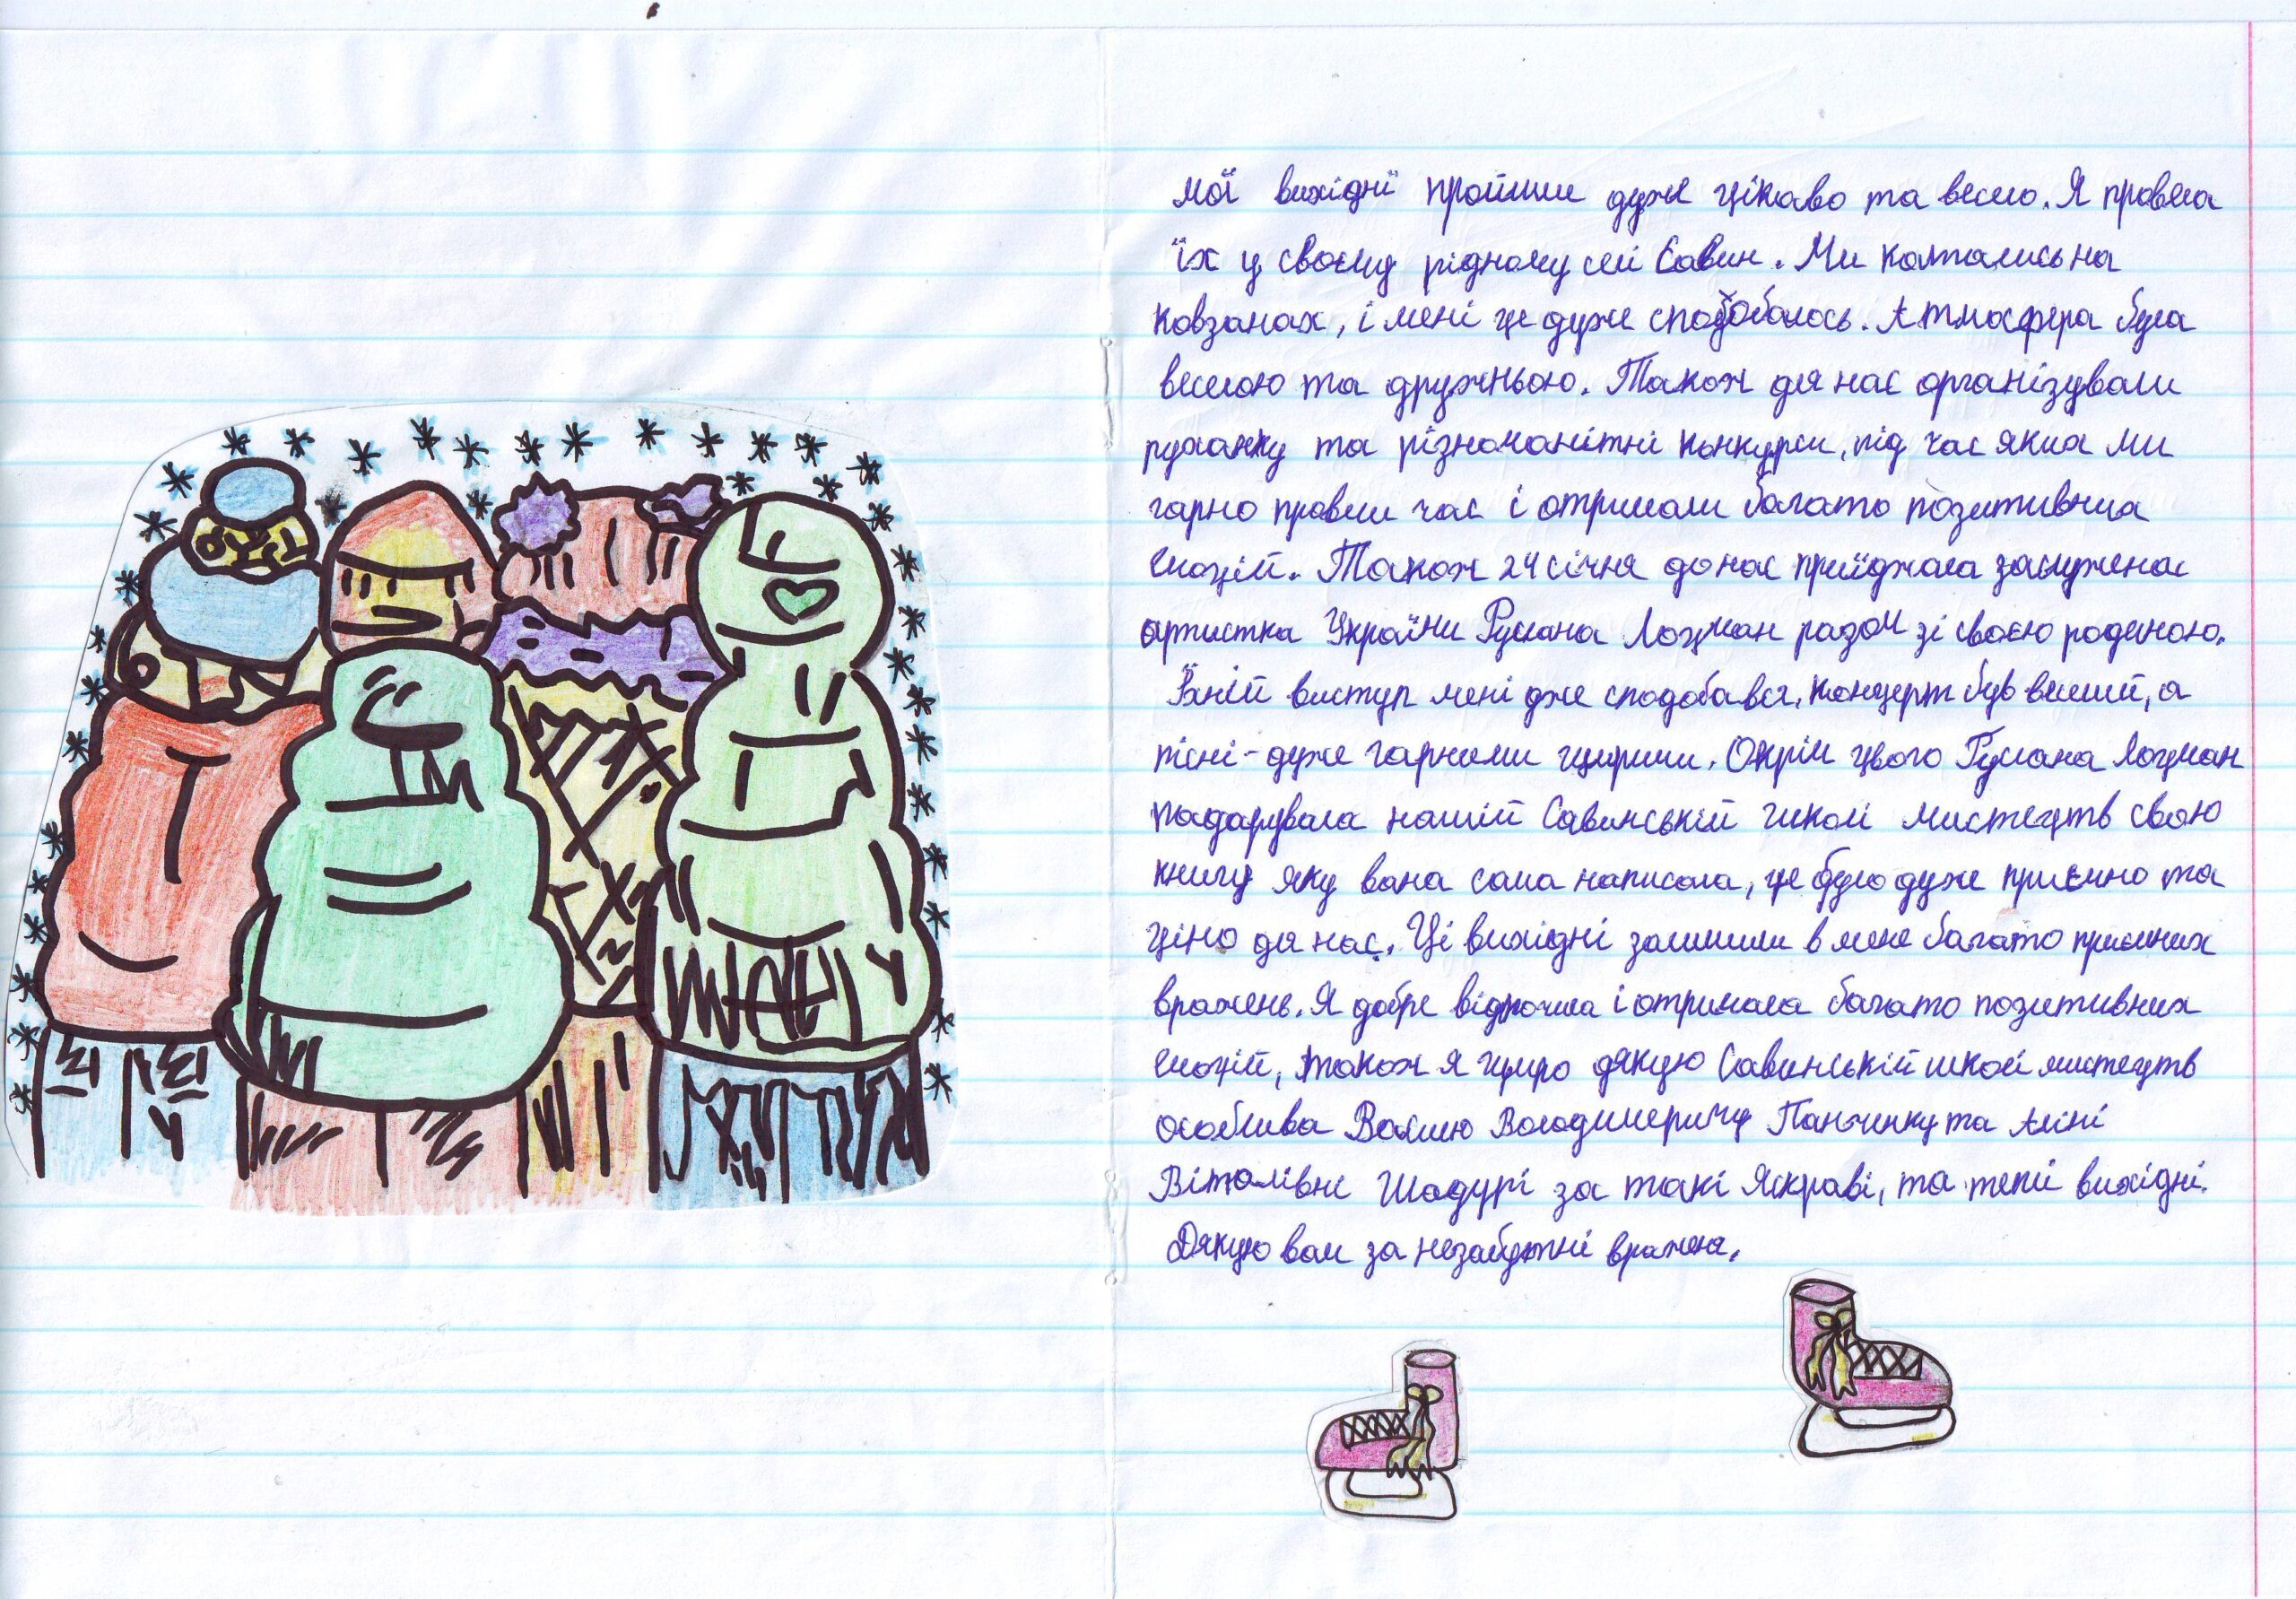 мої вихідні пройшли дуже цікаво та весело. Я провела
їх у своєму рідному селі Савин. Ми катались на
ковзанах, і мені це дуже сподобалось. Атмосфера була
веселою та дружньою. Також для нас організували
руханку та різноманітні конкурси, під час яких ми
гарно провели час і отримали багато позитивних
емоцій. Також 24 січня до нас приїджала заслужена
артистка України Руслана Лоцман разом зі своєю родиною.
Їхній виступ мені дже сподобався. Концерт був веселий, а
пісні - дуже гарними щирими. Окрім цього Руслана Лоцман
подарувала нашій Савинській школі мистецтв свою
книгу яку вона сама написала, це було дуже приємно та
ціно для нас. Ці вихідні залишили в мене багато приємних
вражень. Я добре відпочила і отримала багато позитивних
емоцій, також я щиро дякую Савинській школі мистецтв
особлива Василю Володимировичу Панченку та Аліні
Віталівне Шадурі за такі Яскраві, та теплі вихідні.
Дякую вам за незабутні враження.